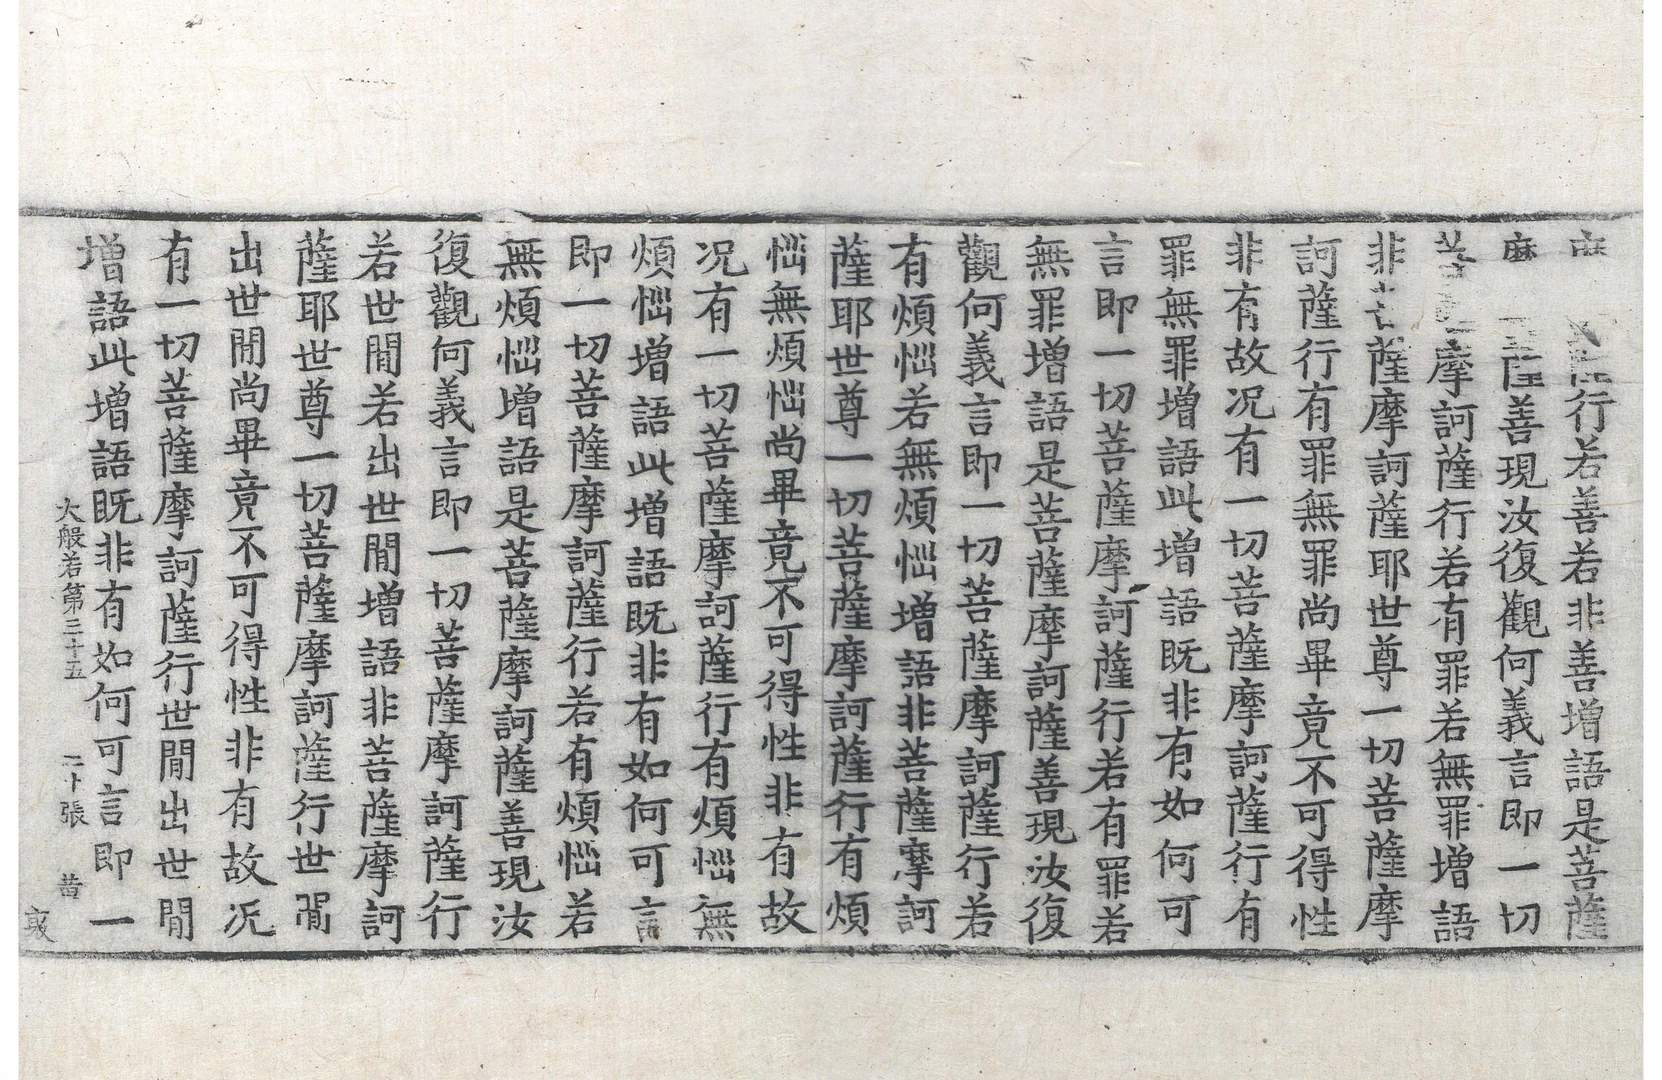 行若善若非善增語是菩薩
薩善現汝復觀何義言即一切
摩訶薩行若有罪若無罪增語
非菩薩摩訶薩耶世尊一切菩薩摩
訶薩行有罪無罪尚畢竟不可得性
非有故况有一切菩薩摩訶薩行有
罪無罪增語此增語既非有如何可
言即一切菩薩摩訶薩行若有罪若
無罪增語是菩薩摩訶薩善現汝復
觀何義言即一切菩薩摩訶薩行若
有煩惱若無煩惱增語非菩薩摩訶
薩耶世尊一切菩薩摩訶薩行有煩
惱無煩惱尚畢竟不可得性非有故
况有一切菩薩摩訶薩行有煩惱無
煩惱增語此增語既非有如何可言
即一切菩薩摩訶薩行若有煩惱若
無煩惱增語是菩薩摩訶薩善現汝
復觀何義言即一切菩薩摩訶薩行
若世閒若出世閒增語非菩薩摩訶
薩耶世尊一切菩薩摩訶薩行世閒
出世閒尚畢竟不可得性非有故况
有一切菩薩摩訶薩行世閒出世閒
增語此增語既非有如何可言即一
大般若第三十五 二十張 昔